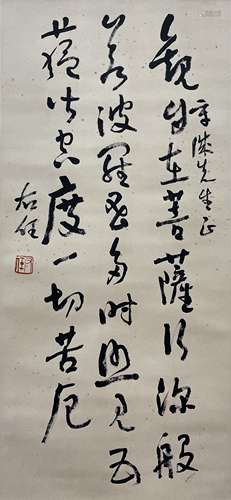 先生正
觀自在菩薩行深般
若波羅蜜多時照見五
蘊皆空度一切苦厄
右任